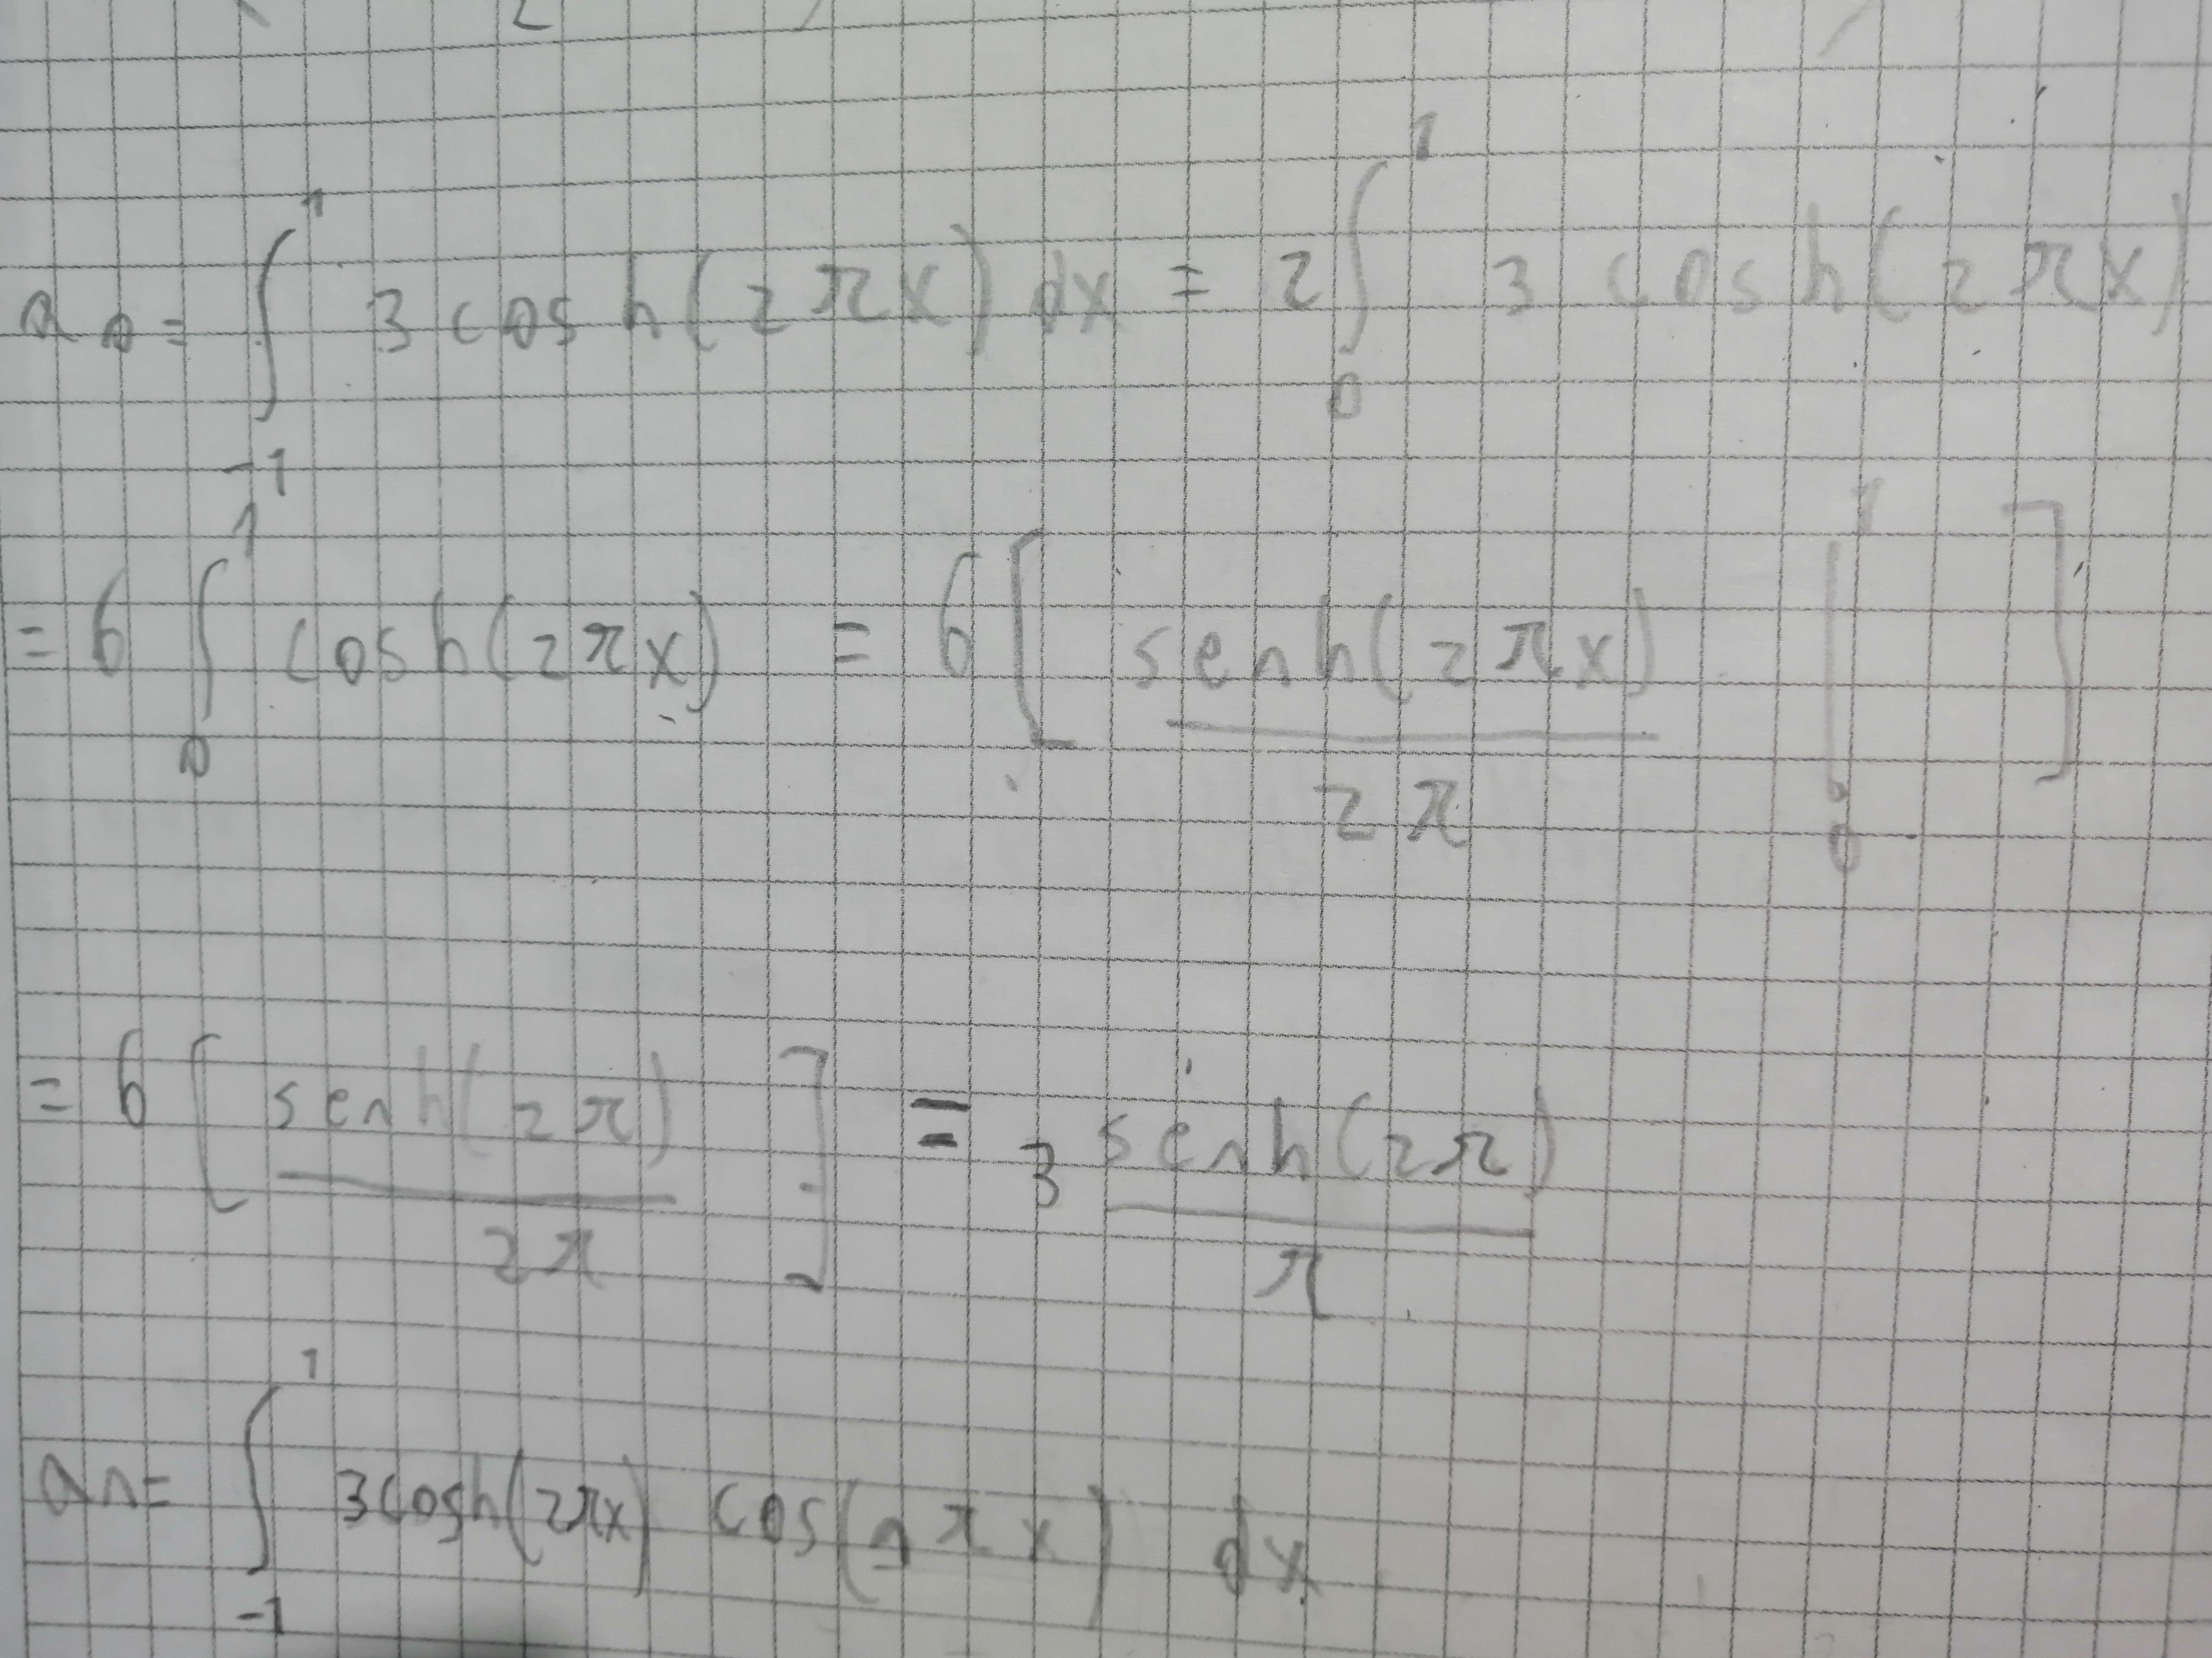 2
a0 = ∫_{-1}^{1} 3 cosh(2πx) dx = 2 ∫_{0}^{1} 3 cosh(2πx)
= 6 ∫_{0}^{1} cosh(2πx) = 6 [ senh(2πx) / 2π |_{0}^{1} ]
= 6 [ senh(2π) / 2π ] = 3 senh(2π) / π
an = ∫_{-1}^{1} 3cosh(2πx) cos(nπx) dx